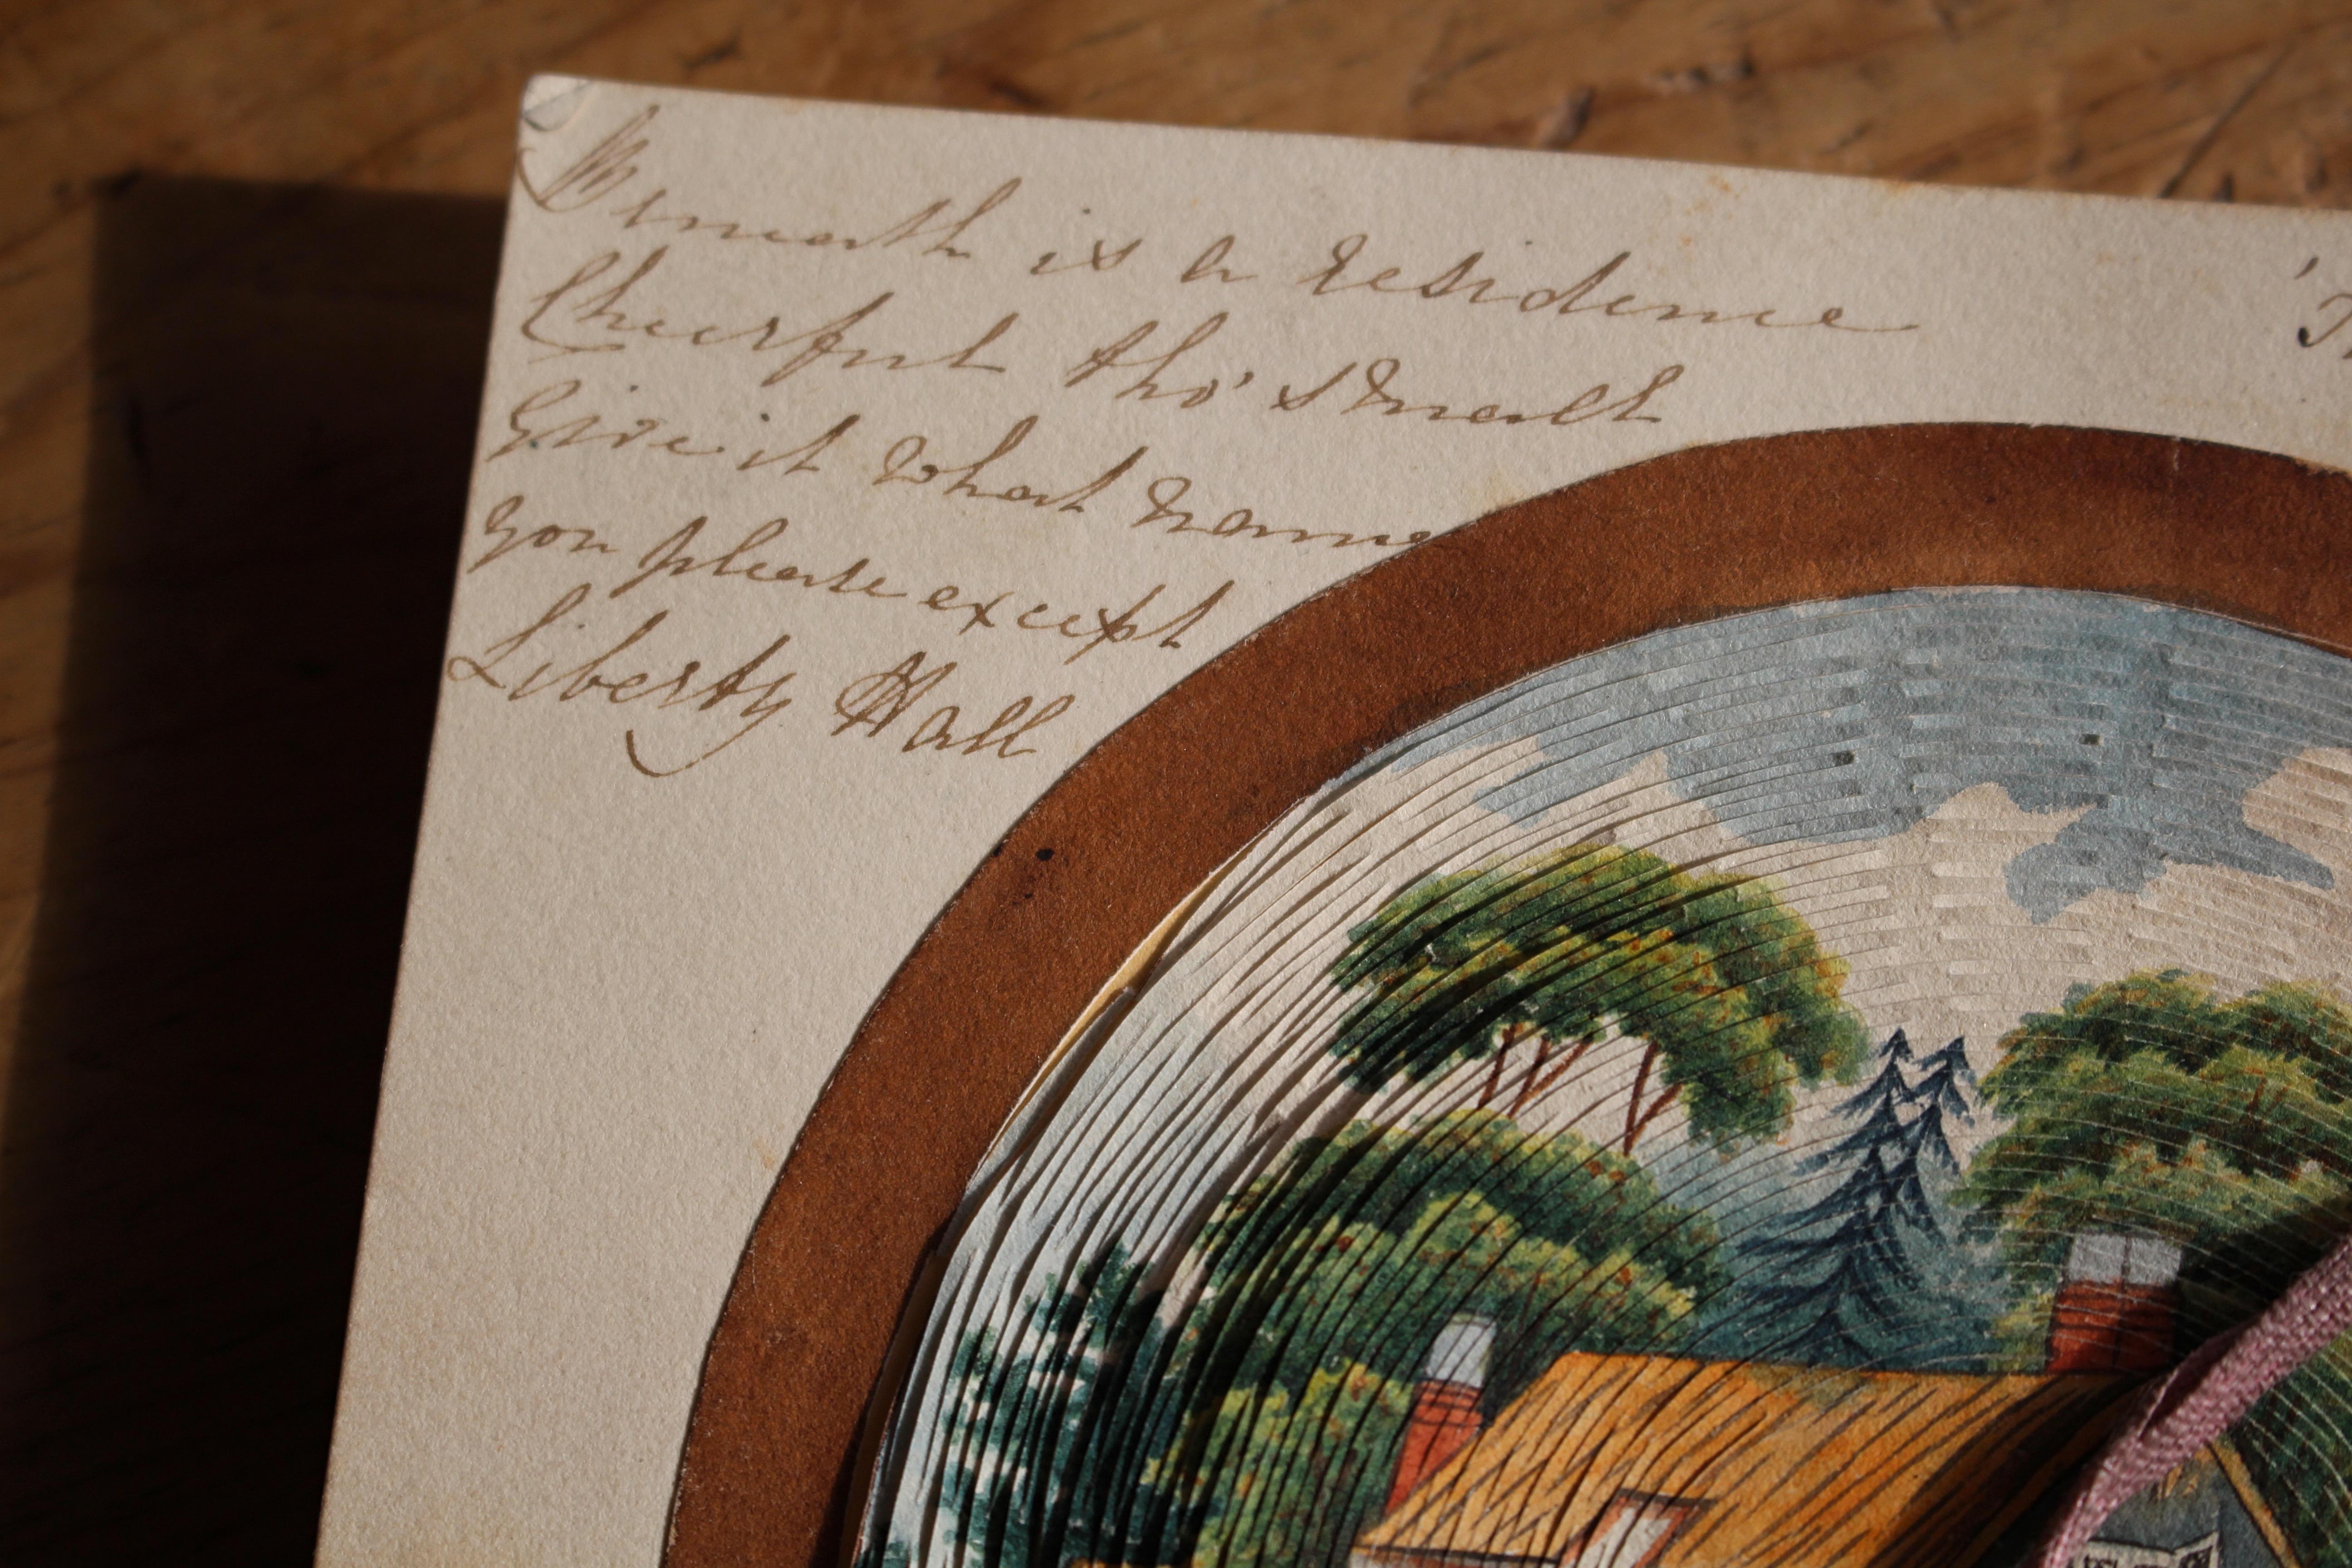 Beneath is a residence
Cheerful tho' small
Give it what name
you please except
Liberty Hall